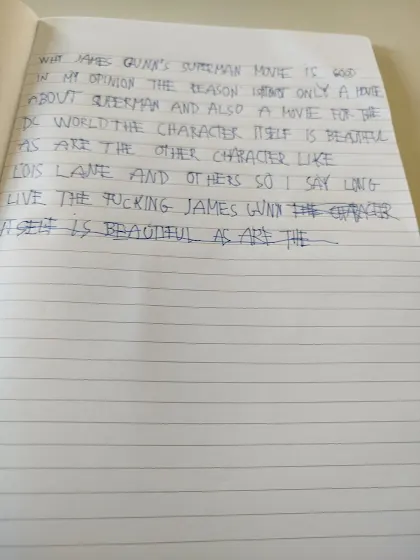 WHY JAMES GUNN'S SUPERMAN MOVIE IS GOOD
IN MY OPINION THE REASON IS NOT ONLY A MOVIE
ABOUT SUPERMAN AND ALSO A MOVIE FOR THE
DC WORLD THE CHARACTER ITSELF IS BEATIFUL
AS ARE THE OTHER CHARACTER LIKE
LOIS LANE AND OTHERS SO I SAY LONG
LIVE THE FUCKING JAMES GUNN THE CHARACTER
ITSELF IS BEAUTIFUL AS ARE THE